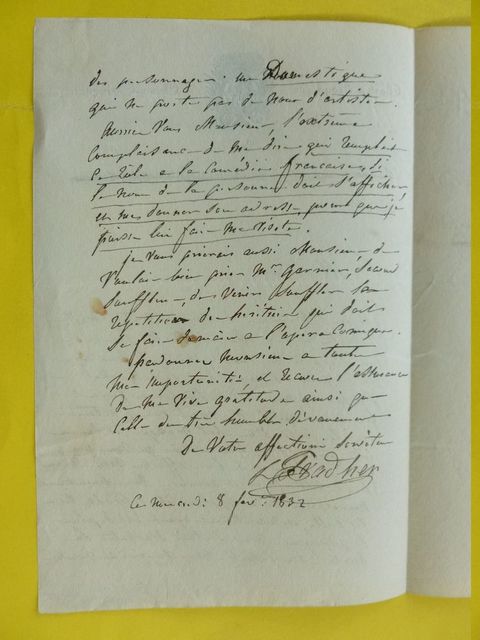 des personnages: un Domestique
qui ne porte pas de nom d'artiste.
auriez Vous Monsieur, l'extrême
Complaisance de me dire qui remplit
Ce Role a la Comédie française, si
le nom de la personne doit s'afficher
et me donner Son adresse, pour que je
puisse lui faire ma Visite.
je vous prierais aussi Monsieur de
Vouloir bien prier Mr. Garnier, Second
Souffleur, de Venir Souffler la
repetition de qui doit
Se faire a l'opera Comique.
pardonnez Monsieur a toute
mon importunité, et recevez l'assurance
De ma Vive gratitude ainsi que
Celle du très humble dévouement
De Votre affectionné Serviteur
Pradher
Ce mercredi 8 fev: 1832